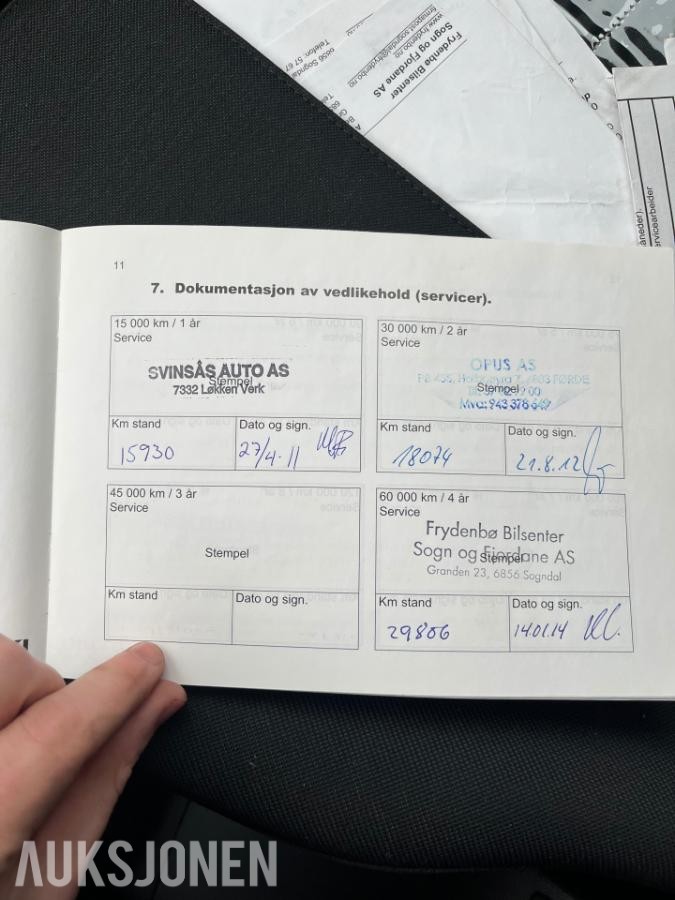 Frydenbø Bilsenter
Sogn og Fjordane AS
www.frydenbo.no
6856 Sogndal
Telefon: 57 67
ervicearbeider
11
7. Dokumentasjon av vedlikehold (servicer).
15 000 km / 1 år
Service
SVINSÅS AUTO AS
Stempel
7332 Løkken Verk
Km stand
Dato og sign.
15930
27/4-11
30 000 km / 2 år
Service
OPUS AS
FØRDE
Stempel
Km stand
Dato og sign.
18074
21.8.12
45 000 km / 3 år
Service
Stempel
Km stand
Dato og sign.
60 000 km / 4 år
Service
Frydenbø Bilsenter
Sogn og Fjordane AS
Stempel
Granden 23, 6856 Sogndal
Km stand
Dato og sign.
29806
14.01.14
AUKSJONEN